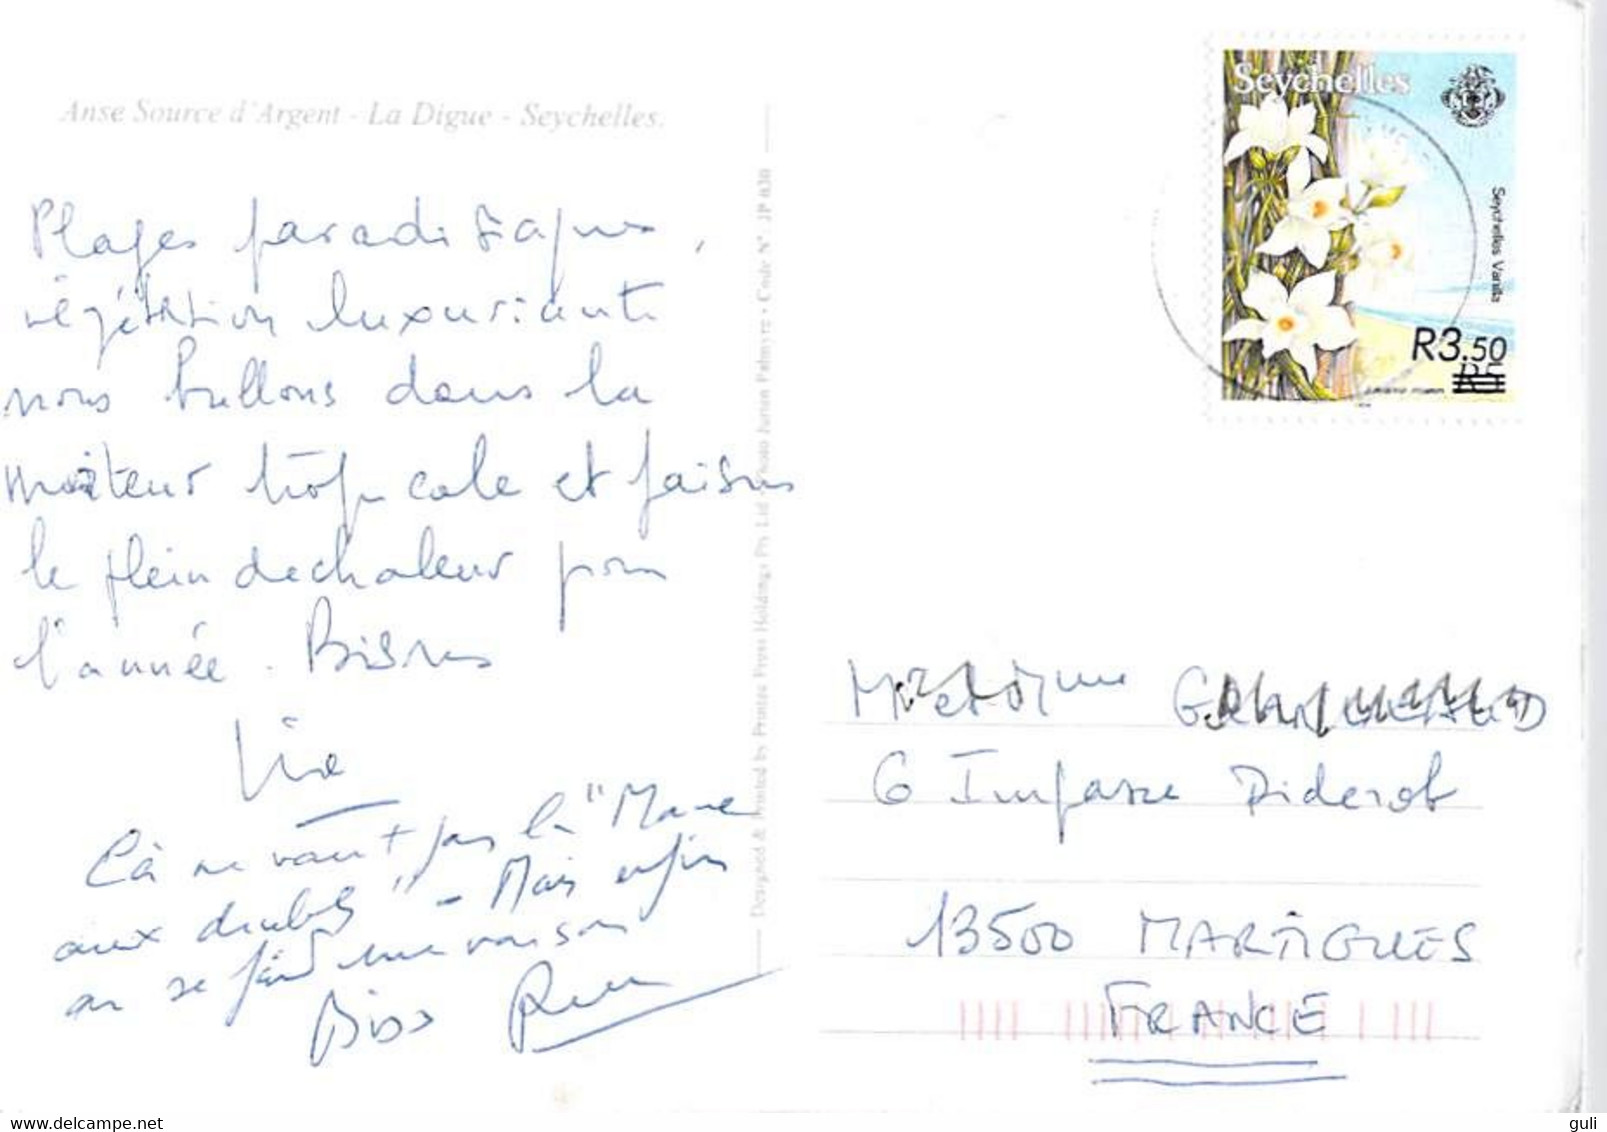 Anse Source d'Argent - La Digue - Seychelles.
Plages paradisiaques,
végétation luxuriante
nous bullons dans la
moiteur tropicale et faisons
le plein de chaleur pour
l'année. Bisous
Cà ne vaut pas la "Mare
aux diables" - Mais enfin
on se fait une raison
Bises
Designed & Printed by Printec Press Holdings Pty Ltd • Photo Jurien Palmyre • Code N° JP 030
Seychelles
Seychelles Vanilla
R3.50
R5
M et Mme
6 Impasse Diderot
13500 MARTIGUES
FRANCE
guli